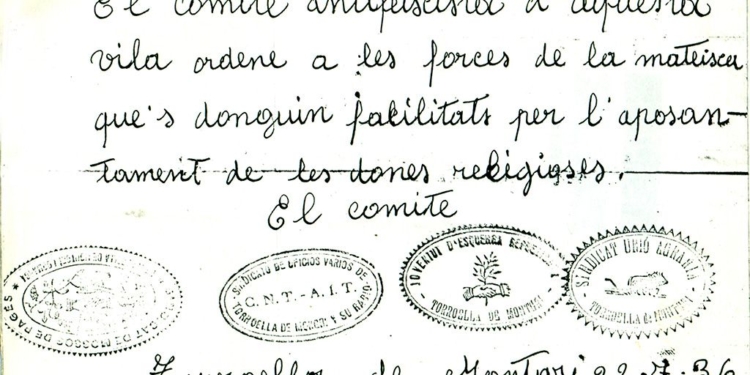 El comite antifascista d'aquesta
vila ordene a les forces de la mateisca
que's donguin fasilitats per l'aposan-
tament de les dones religioses.
El comite
SINDICAT DE MOSSOS DE PAGÉS
SINDICATO DE OFICIOS VARIOS DE
C.N.T.-A.I.T.
TORROELLA DE MONTGRI Y SU RADIO
JOVENTUT D'ESQUERRA REPUBLICANA
TORROELLA DE MONTGRI
SINDICAT UNIÓ AGRARIA
TORROELLA de MONTGRI
Torroella de Montgri 22-7-36